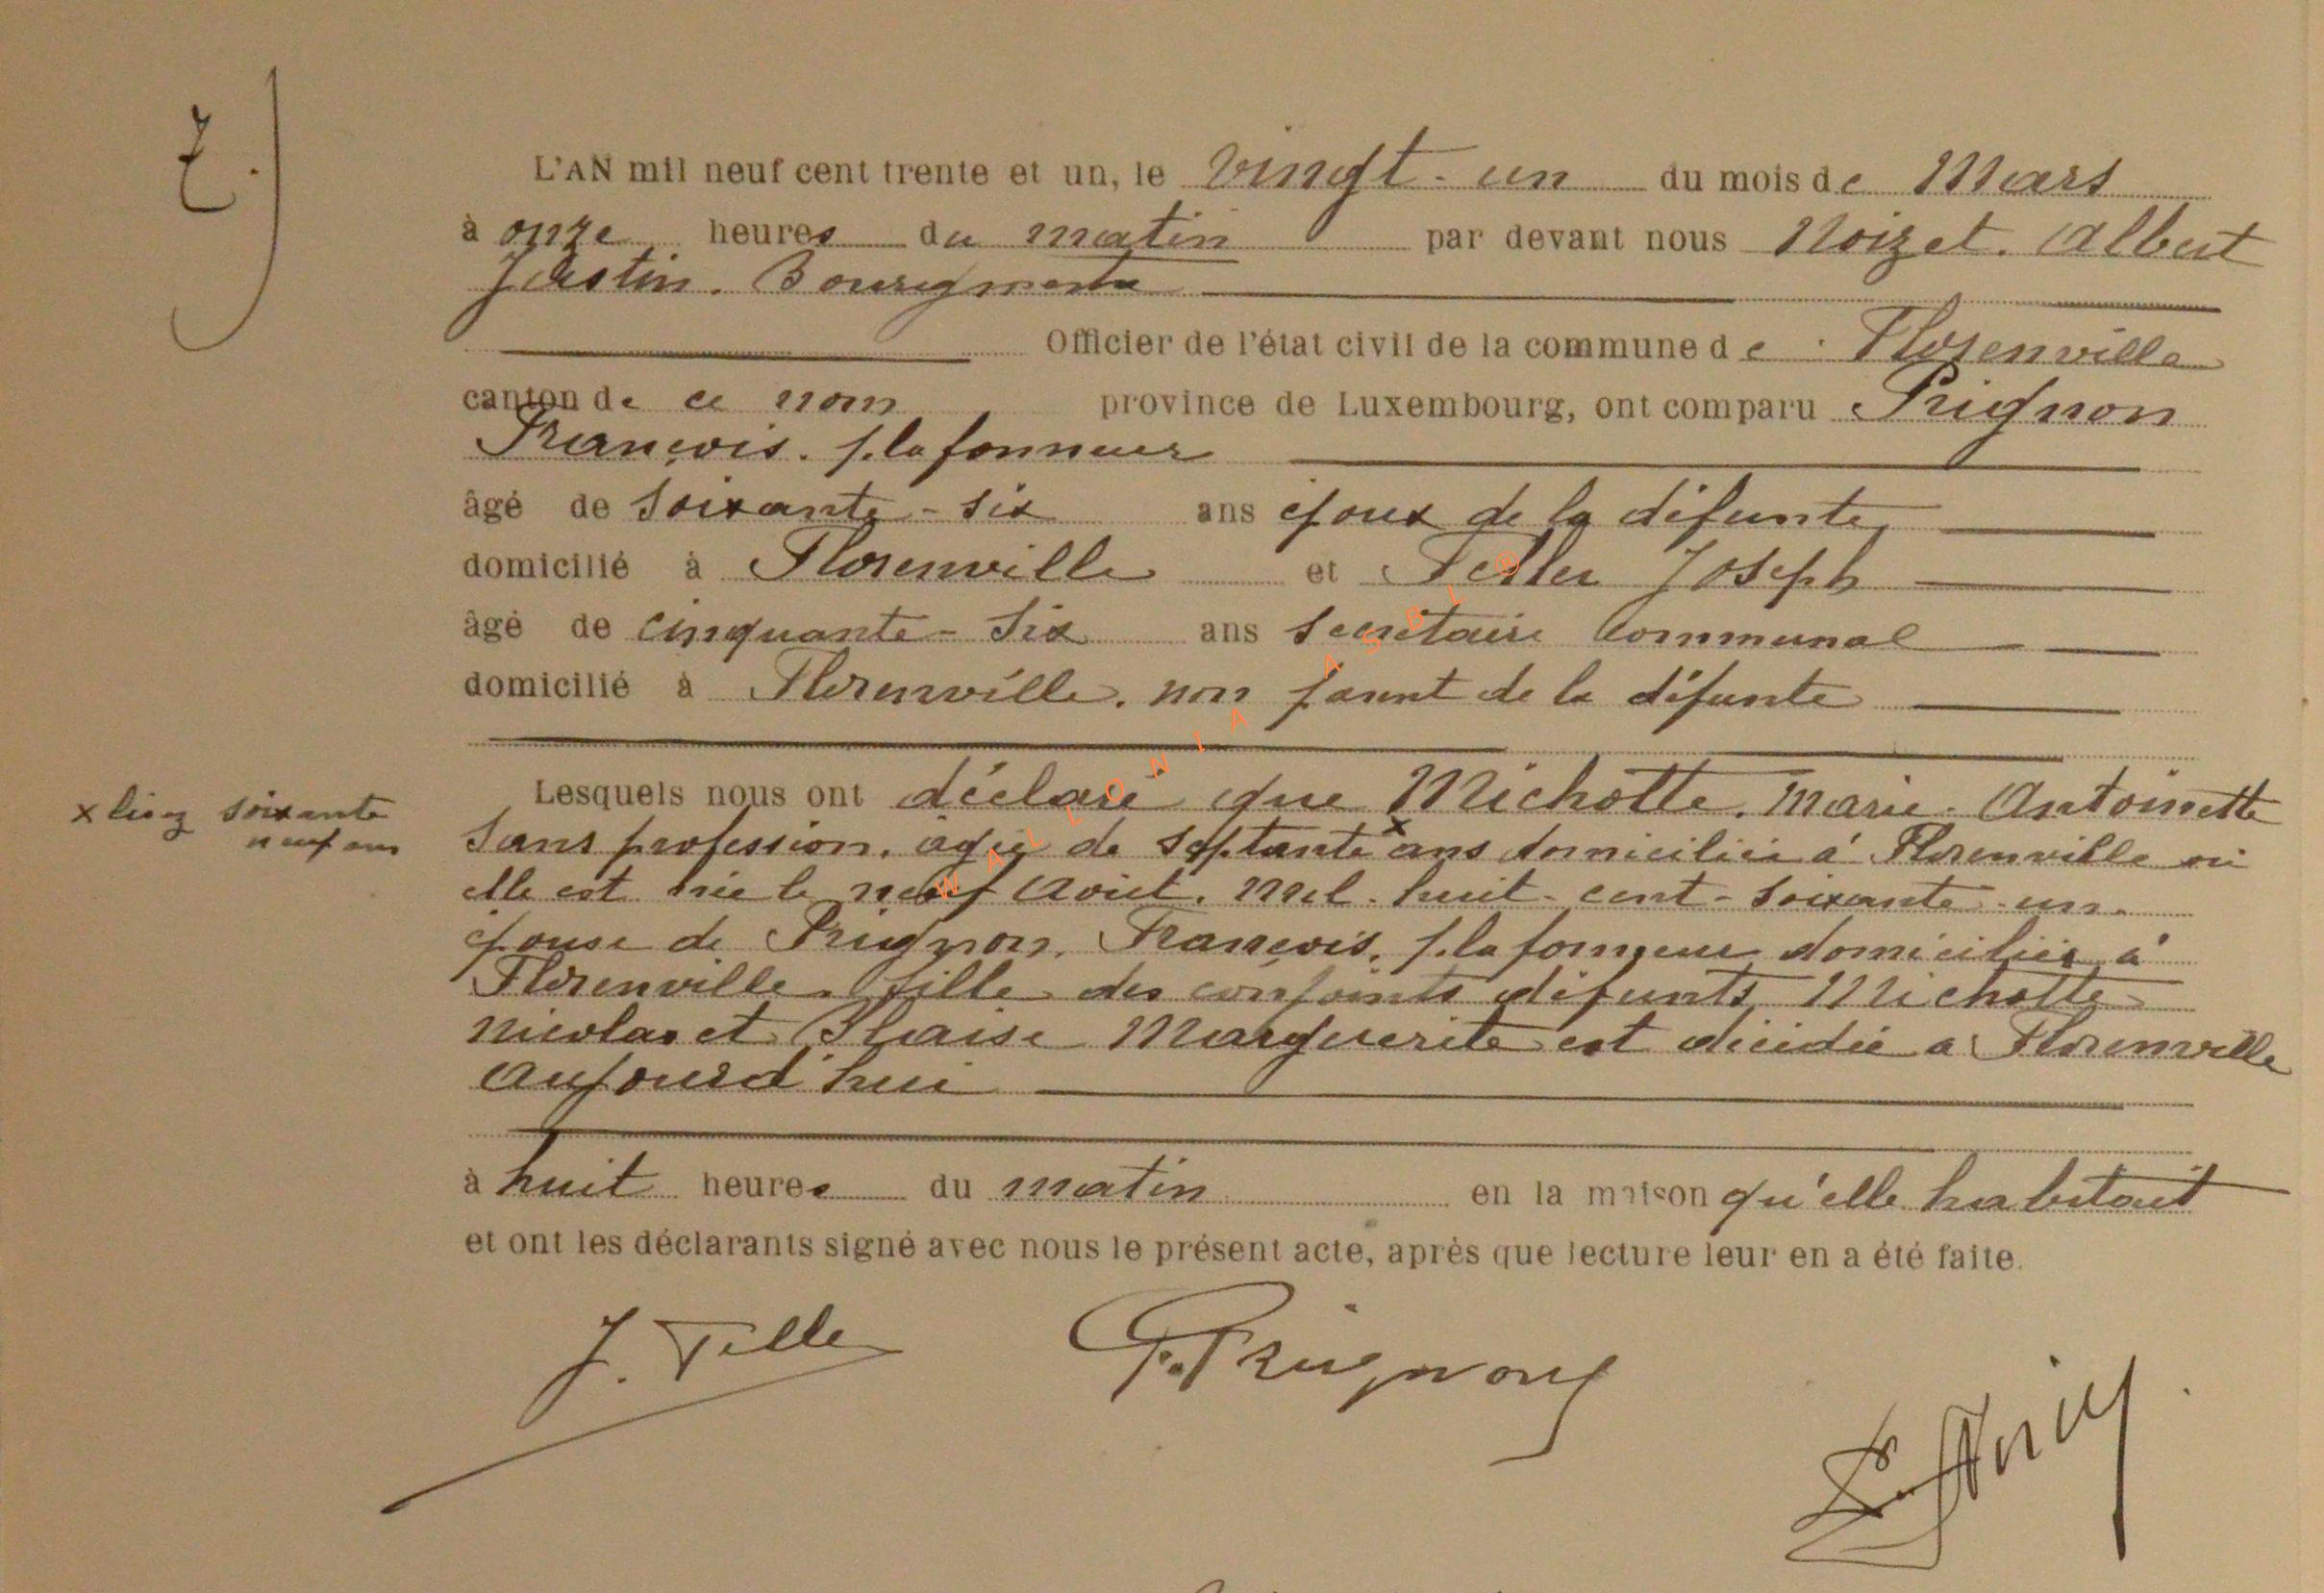 7.
L'AN mil neuf cent trente et un, le vingt-un du mois de Mars
à onze heures du matin par devant nous Noizet. Albert
Justin. Bourgmestre
Officier de l'état civil de la commune de Florenville
canton de ce nom province de Luxembourg, ont comparu Prignon
François. plafonneur
âgé de soixante-six ans époux de la défunte
domicilié à Florenville et Feller Joseph
âgé de cinquante-six ans secrétaire communal
domicilié à Florenville. non parent de la défunte
Lesquels nous ont déclaré que Michotte. Marie. Antoinette
x lisez soixante
neuf ans
sans profession. âgée de septante x ans domiciliée à Florenville où
elle est née le neuf Août. mil. huit-cent-soixante-un.
épouse de Prignon. François. plafonneur domiciliés à
Florenville. fille des conjoints défunts Michotte
Nicolas et Blaise Marguerite est décédée à Florenville
aujourd'hui
à huit heures du matin en la maison qu'elle habitait
et ont les déclarants signé avec nous le présent acte, après que lecture leur en a été faite.
J. Feller F. Prignon
WALLONIA ASBL ©